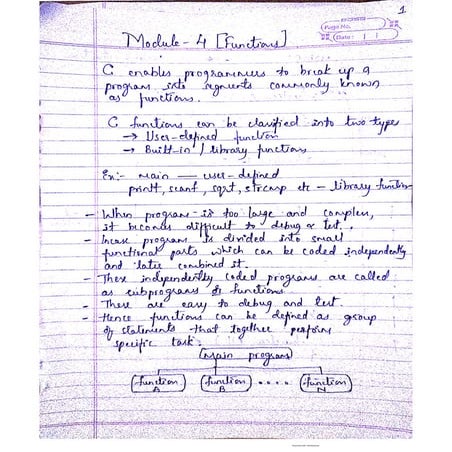 1
Page No.
Date: | |
Module - 4 [Functions]
C enables programmers to break up a
program into segments commonly known
as functions.
C functions can be classified into two types
→ User-defined function
→ Built-in / library functions
Ex:- main — user-defined
printf, scanf, sqrt, strcmp etc - library function
- When program is too large and complex,
it becomes difficult to debug & test..
- Incase program is divided into small
functional parts which can be coded independently
and later combined it.
- These independently coded programs are called
as subprograms or functions.
- There are easy to debug and test.
- Hence functions can be defined as group
of statements that together perform
specific task.
main program
function A
function B
....
function N